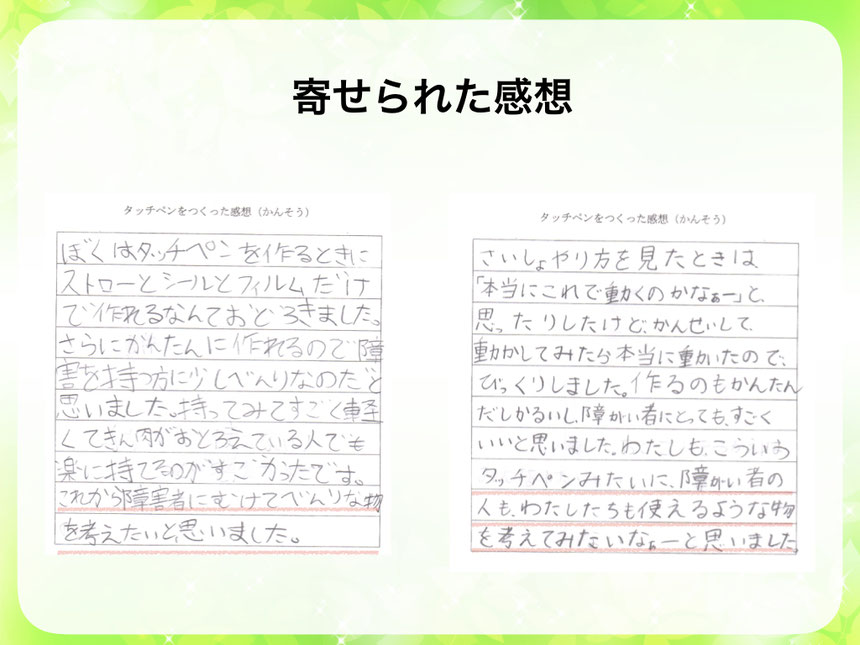 寄せられた感想
タッチペンをつくった感想（かんそう）
ぼくはタッチペンを作るときに
ストローとシールとフィルムだけ
で作れるなんておどろきました。
さらにかんたんに作れるので障
害を持つ方に少しべんりなのだと
思いました。持ってみてすごく軽
くてきん肉がおとろえている人でも
楽に持てそのがすごかったです。
これから障害者にむけてべんりな物
を考えたいと思いました。
タッチペンをつくった感想（かんそう）
さいしょやり方を見たときは
「本当にこれで動くのかなぁー」と、
思ったりしたけど、かんせいして、
動かしてみたら本当に動いたので、
びっくりしました。作るのもかんたん
だしかるいし、障がい者にとっても、すごく
いいと思いました。わたしも、こういお
タッチペンみたいに、障がい者の
人も、わたしたちも使えるような物
を考えてみたいなぁーと思いました。